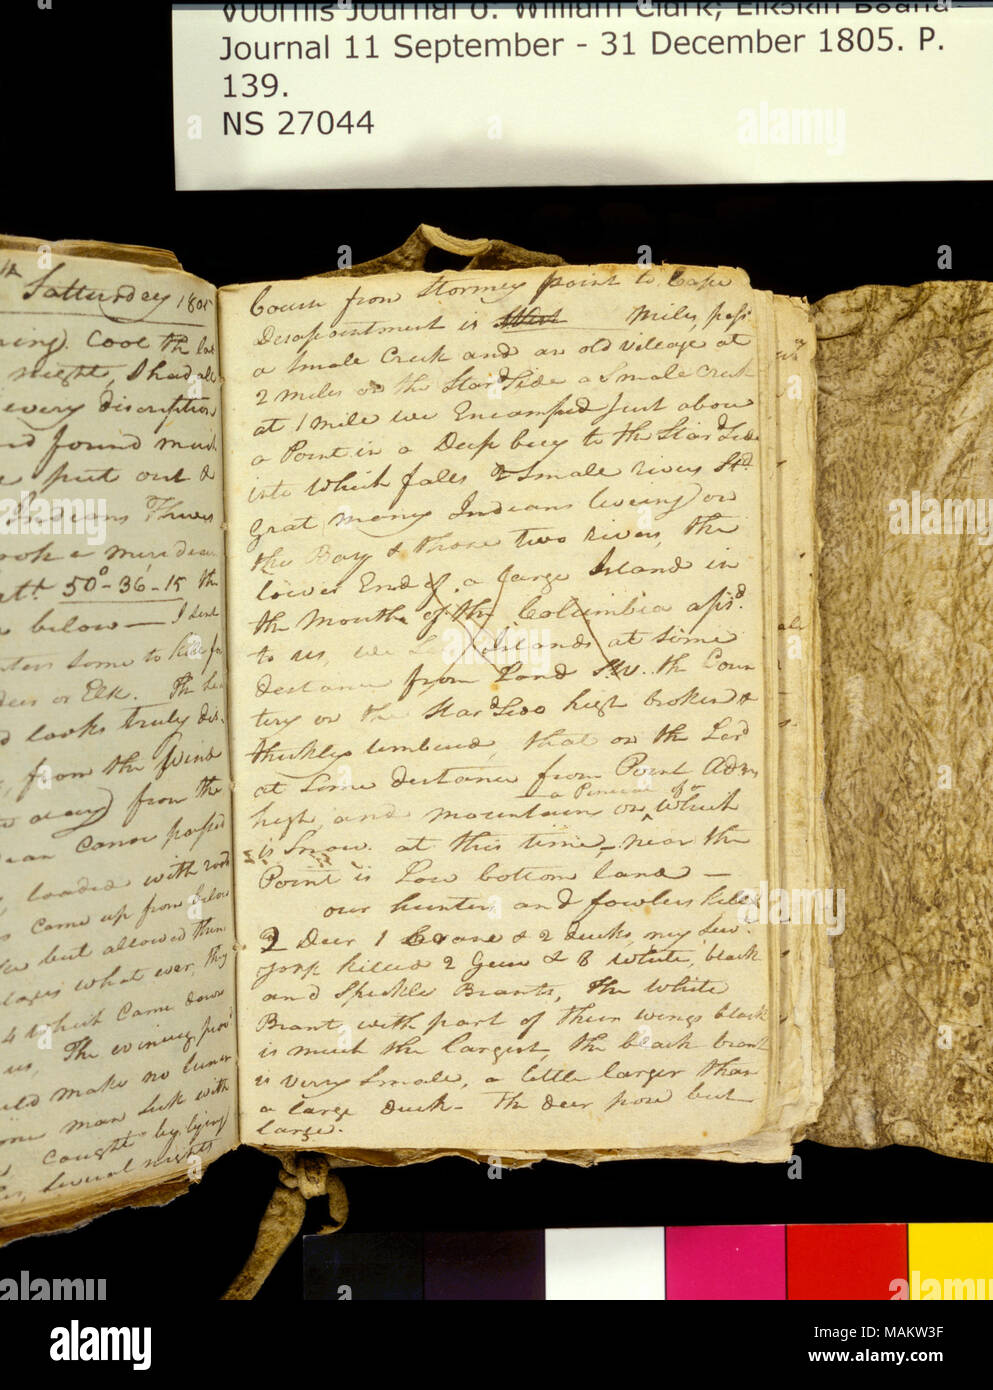 Voorhis Journal
William Clark; Elkskin Bound
Journal 11 September - 31 December 1805. P.
139.
NS 27044
Satturday 1805
Cool the
night, I had all
every discription
found much
put out &
Indians Thieves
took a meridean
50°-36'-15 the
below — I sent
some to kill
deer or Elk. The
looks truly dis
from the Wind
from the
Canoe passed
loaded with
came up from below
but allowed them
what ever they
4 which Came down
us, The evining
make no
man Sick with
caught by lying
Several nights
Course from Stormey point to Cape
Disapointment is West Miles, passed
a Small Creek and an old village at
2 miles on the Stard Side a Small Creek
at 1 mile we Encamped just above
a Point in a Deep bay to the Stard Side
into which falls 2 Small rivers Std.
Grat many Indians liveing on
the Bay & those two rivers, the
lower End of a large Island in
the mouth of the Columbia opsd.
to us, we Islands at Some
distance from Land S.W. the Coun
try on the Stard Side high broken &
thickly timbered, that on the Lard
at Some distance from Point Adms
high and mountains on a Pinical of which
is Snow at this time, near the
Point is Low bottom land —
our hunters and fowlers killed
2 Deer 1 Crane & 2 ducks, my Serv.
York killed 2 Geese & 8 White, black
and Speckle Brants, the White
Brant with part of their wings black
is much the largest, the black brant
is very Small, a little larger than
a large duck - The deer pore but
large.
alamy
alamy
Image ID: MAKW3F
www.alamy.com